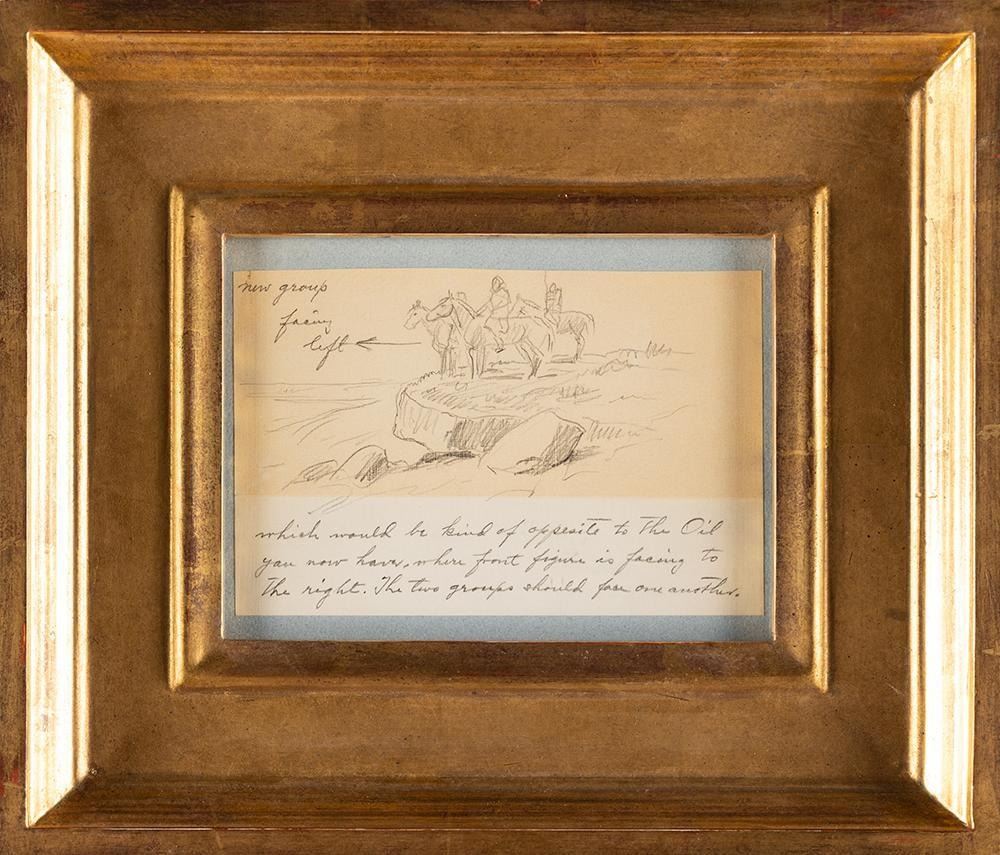 new group
facing
left
which would be kind of oppesite to the Oil
you now have, where front figure is facing to
the right. The two groups should face one another.